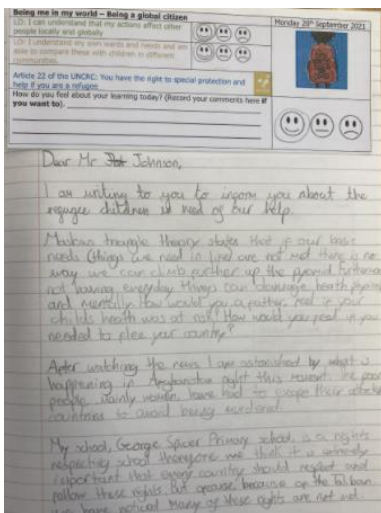 Being me in my world – Being a global citizen
LO: I can understand that my actions affect other
people locally and globally
LO: I understand my own wants and needs and am
able to compare these with children in different
communities.
Article 22 of the UNCRC: You have the right to special protection and
help if you are a refugee.
How do you feel about your learning today? (Record your comments here if
you want to).
Monday 20th September 2021
Dear Mr Johnson,
I am writing to you to inform you about the
refugee children in need of our help.
Maslows triangle theory states that if our basic
needs (things we need in live) are not met there is no
way we can climb further up the pyramid furthermore
not having everyday things can damage heath
and mentally. How would you a father, feel if your
childs heath was at risk? How would you feel if you
needed to flee your country?
After watching the news I am astonished by what is
happening in right this moment. The poor
people, mainly women, have had to escape their
countries to avoid being murdered.
My school, George Spicer Primary school, is a rights
respecting school therefore we think it is
important that every country should respect and
follow these rights, but because of the Taliban
we have noticed many of these rights are not met.